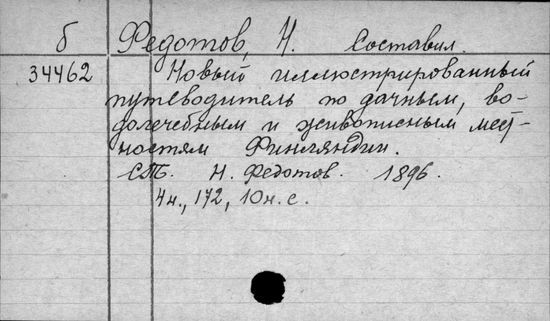 б Федотов, Н. Составил.
34462 Новый иллюстрированный
путеводитель по дачным, во-
долечебным и живописным мест-
ностям Финляндии.
СПб. Н. Федотов. 1896.
4н., 172, 10н. с.